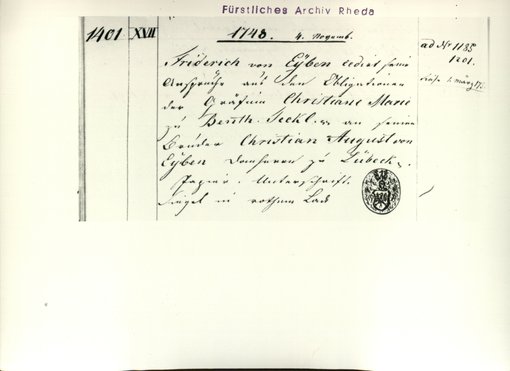 Fürstliches Archiv Rheda
1401 XVII 1748. 4. Novemb. ad No 1185
1201.
Friderich von Eÿben cedirt seine
Ansprüche aus den Obligationen
der Gräfin Christiane Marie
zu Benth. Teckl. an seinen
Bruder Christian August von
Eÿben Domherrn zu Lübeck.
Papier. Unterschrift.
Siegel in rothem Lack